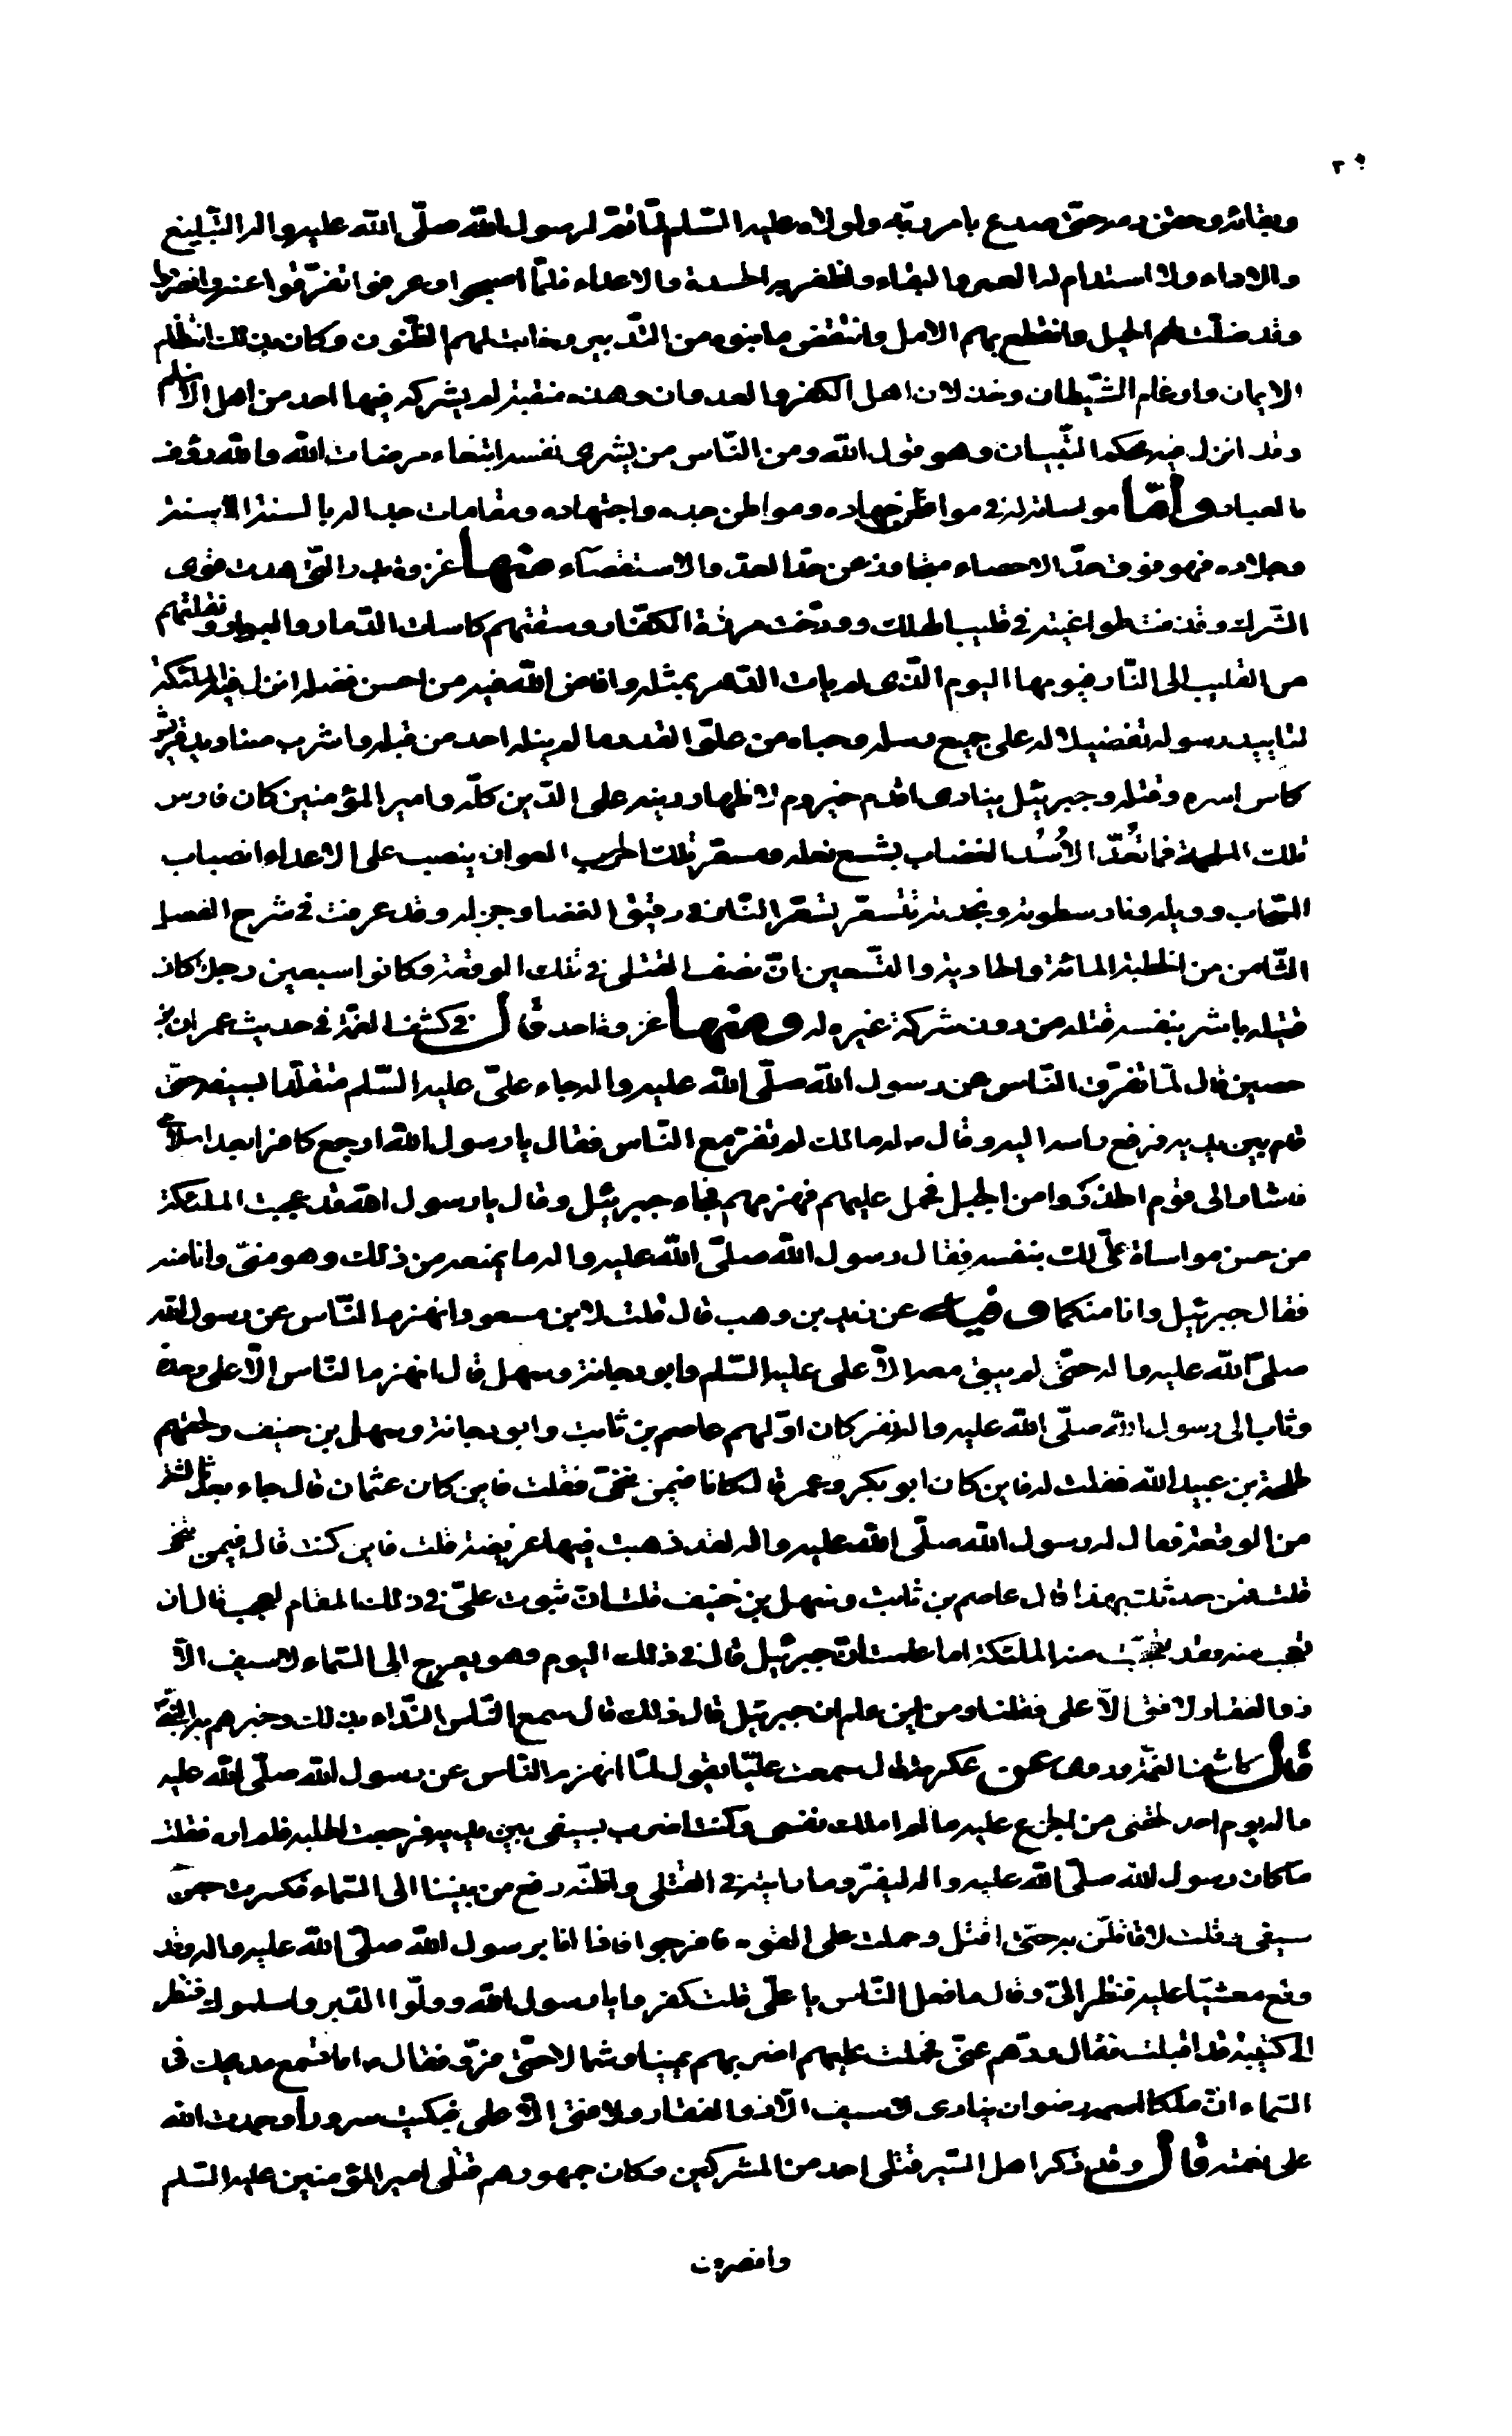 وبقائه وحقن دمه حتى صدع بامر ربّه ولولاه عليه السّلم لما تمّ لرسول الله صلّى الله عليه واله التّبليغ
والاداء ولا استدام له العمر والبقاء ولظفر به الحسدة والاعداء فلمّا اصبحوا وعرفوا تفرّقوا عنه وانصرفوا
وقد ضلّت لهم الحيل وانقطع بهم الامل وانتقض ما بنوه من التّدبير وخابت لهم الظّنون وكان بذلك انتظام
الايمان وارغام الشّيطان وخذلان اهل الكفر والعدوان وهذه منقبة لم يشركه فيها احد من اهل الاسلام
وقد انزل فيه محكم التّبيان وهو قول الله ومن النّاس من يشرى نفسه ابتغاء مرضات الله والله رؤف
بالعباد وامّا مواساته له في مواطن جهاده ومواطن جده واجتهاده ومقامات جداله بالسنة الاسنة
وجلاده فهو فوق حدّ الاحصاء متجاوز عن حدّ العدّ والاستقصآء منها غزوة بدر الّتى هدت قوى
الشّرك وقذفت طواغيته في قليب الهلك ودوّخت مردة الكفّار وسقتهم كاسات الدّمار والبوار ونقلتهم
من القليب الى النّار فيومها اليوم الّذى لم يات الدّهر بمثله وافاض الله فيه من احسن فضله انزل فيه الملئكة
لتاييد رسوله تفضيلا له على جميع رسله وحباه من علوّ القدر ما لم ينله احد من قبله واشرب صناديد قريش
كاس اسره وقتله وجبرئيل ينادى اقدم حيزوم لاظهار دينه على الدّين كلّه وامير المؤمنين كان فارس
تلك الملحمة فما تُعدّ الاُسُد الغضاب بشسع نعله ومسعّر تلك الحرب العوان ينصب على الاعداء انصباب
السّحاب ووبله ونار سطوته ونجدته تتسعّر تسعّر النّار في رقيق الغضا وجزله وقد عرفت في شرح الفصل
الثّامن من الخطبة المائة والحادية والتّسعين انّ نصف القتلى في تلك الوقعة وكانوا سبعين رجلا كان
قتيله باشر بنفسه قتله من دون شركة غيره له ومنها غزوة احد قال في كشف الغمّة في حديث عمران بن
حصين قال لمّا تفرّق النّاس عن رسول الله صلّى الله عليه واله جاء علىّ عليه السّلم متقلّدا بسيفه حتّى
قام بين يديه فرفع راسه اليه وقال له مالك لم تفرّ مع النّاس فقال يا رسول الله ارجع كافرا بعد اسلامى
فاشار الى قوم انحدروا من الجبل فحمل عليهم فهزمهم فجاء جبرئيل وقال يا رسول الله قد عجبت الملئكة
من حسن مواساة علىّ لك بنفسه فقال رسول الله صلّى الله عليه واله ما يمنعه من ذلك وهو منّى وانا منه
فقال جبرئيل وانا منكما وفيه عن زيد بن وهب قال قلت لابن مسعود انهزم النّاس عن رسول الله
صلّى الله عليه واله حتّى لم يبق معه الاّ على عليه السّلم وابو دجانة وسهل قال انهزم النّاس الاّ على وحده
وثاب الى رسول الله صلّى الله عليه واله نفر كان اوّلهم عاصم بن ثابت وابو دجانة وسهل بن حنيف ولحقهم
طلحة بن عبيد الله فقلت له فاين كان ابو بكر وعمر قال كانا فيمن تنحّى فقلت فاين كان عثمان قال جاء بعد ثالثة
من الوقعة فقال له رسول الله صلّى الله عليه واله لقد ذهبت فيها عريضة قلت فاين كنت قال فيمن تنحّى
قلت فمن حدثك بهذا قال عاصم بن ثابت وسهل بن حنيف قلت انّ ثبوت علىّ في ذلك المقام لعجب قال ان
تعجب منه فقد تعجّبت منه الملئكة اما علمت انّ جبرئيل قال في ذلك اليوم وهو يعرج الى السّماء لا سيف الاّ
ذو الفقار ولا فتى الاّ على فقلنا ومن اين علم ان جبرئيل قال ذلك قال سمع النّاس النّداء بذلك وخبرهم به النّبىّ
قال كاشف الغمّة وروى عن عكرمة قال سمعت عليّا يقول لمّا انهزم النّاس عن رسول الله صلّى الله عليه
واله يوم احد لحقنى من الجزع عليه ما لم املك نفسى وكنت اضرب بسيفى بين يديه فرجعت اطلبه فلم اره فقلت
ما كان رسول الله صلّى الله عليه واله ليفرّ وما رايته في القتلى واظنّه رفع من بيننا الى السّماء فكسرت جفن
سيفى وقلت لاقاتلنّ به حتّى اقتل وحملت على القوم فافرجوا فاذا انا برسول الله صلّى الله عليه واله وقد
وقع مغشيّا عليه فنظر الىّ وقال ما فعل النّاس يا علىّ قلت كفروا يا رسول الله وولّوا الدّبر واسلموك فنظر
الى كتيبة قد اقبلت فقال ردّهم عنّى فحملت عليهم اضربهم يمينا وشمالا حتّى فرّوا فقال اما تسمع مديحك فى
السّماء انّ ملكا اسمه رضوان ينادى لا سيف الاّ ذو الفقار ولا فتى الاّ على فبكيت سرورا وحمدت الله
على نعمته قال وقد ذكر اهل السّير قتلى احد من المشركين وكان جمهورهم قتلى امير المؤمنين عليه السّلم
وانصرف